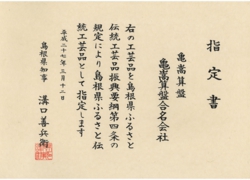 指定書
亀嵩算盤
亀嵩算盤合名会社
右の工芸品を島根県ふるさと
伝統工芸品振興要綱第四条の
規定により島根県ふるさと伝
統工芸品として指定します
平成二十七年三月十二日
島根県知事 溝口善兵衛